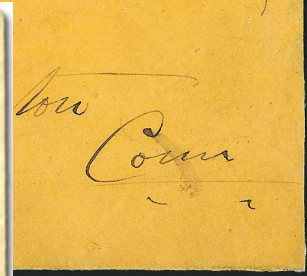 ton
Conn